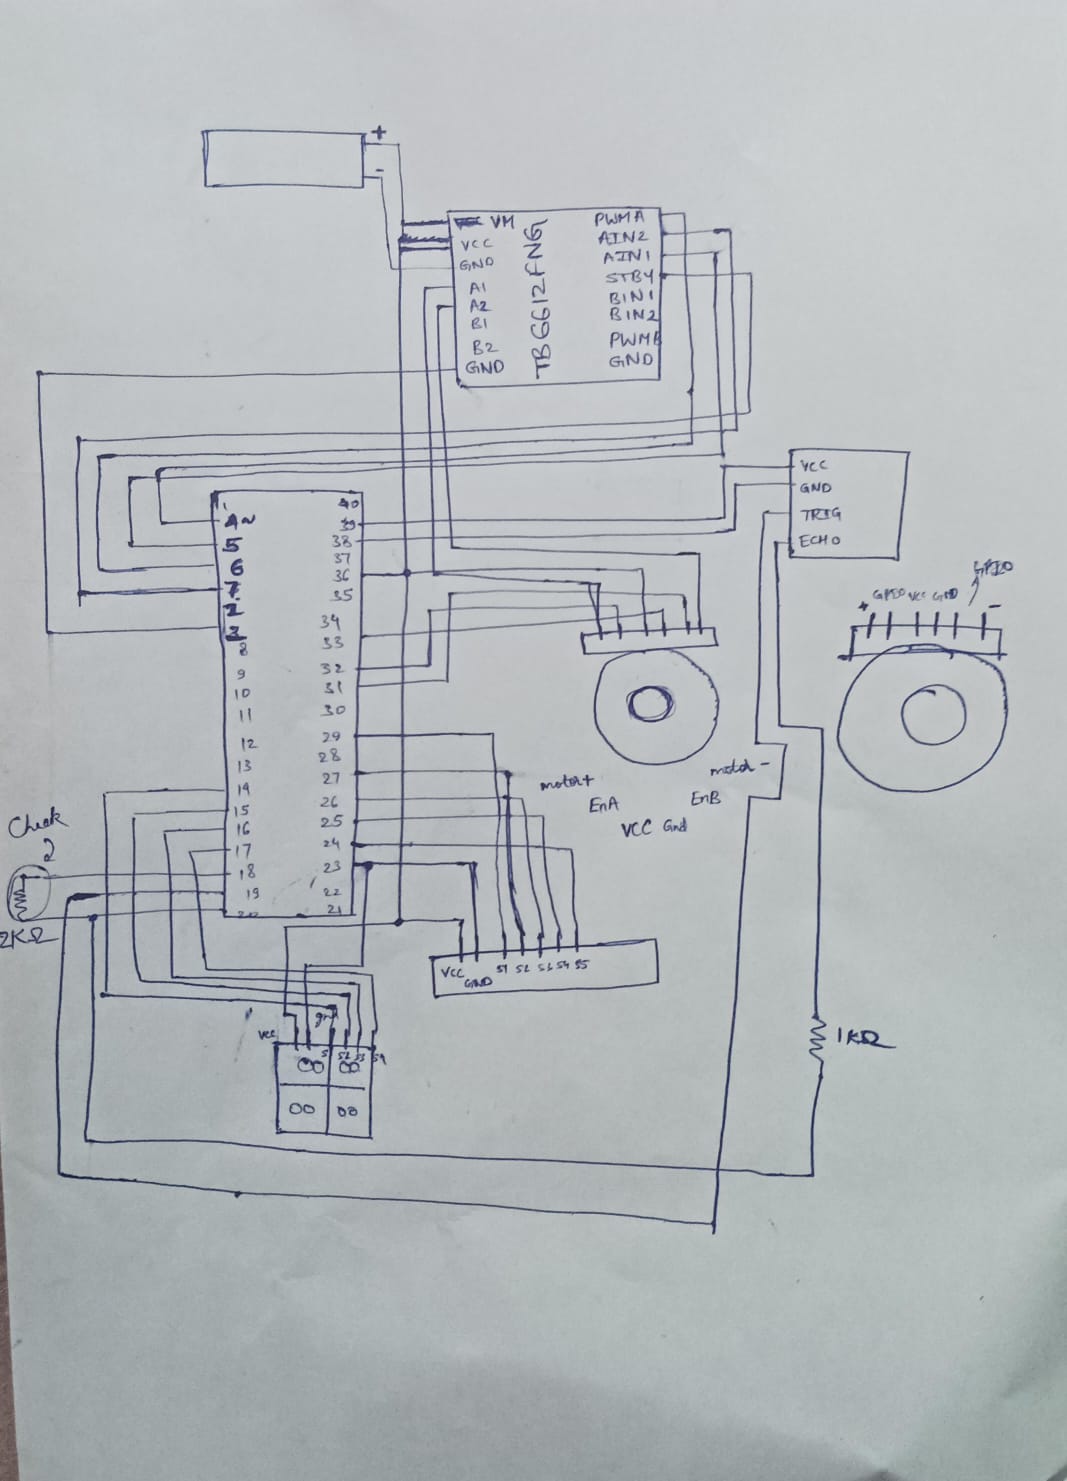 +
-
VM
VCC
GND
A1
A2
B1
B2
GND
TB6612FNG
PWMA
AIN2
AIN1
STBY
BIN1
BIN2
PWMB
GND
VCC
GND
TRIG
ECHO
1
4
5
6
7
2
3
8
9
10
11
12
13
14
15
16
17
18
19
20
40
39
38
37
36
35
34
33
32
31
30
29
28
27
26
25
24
23
22
21
GPIO
+ GPIO VCC GND -
motor+
motor-
EnA
EnB
VCC Gnd
Check
2KΩ
VCC GND S1 S2 S3 S4 S5
1KΩ
Vcc gnd S1 S2 S3 S4